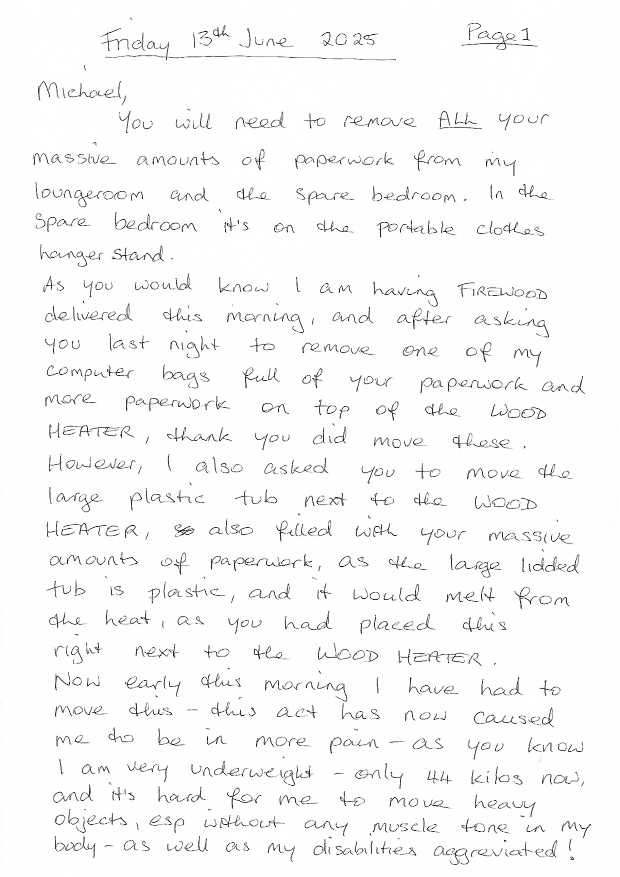 Friday 13th June 2025 Page 1
Michael,
You will need to remove ALL your
massive amounts of paperwork from my
loungeroom and the spare bedroom. In the
Spare bedroom it's on the portable clothes
hanger stand.
As you would know I am having FIREWOOD
delivered this morning, and after asking
you last night to remove one of my
computer bags full of your paperwork and
more paperwork on top of the WOOD
HEATER, thank you did move these.
However, I also asked you to move the
large plastic tub next to the WOOD
HEATER, also filled with your massive
amounts of paperwork, as the large lidded
tub is plastic, and it would melt from
the heat, as you had placed this
right next to the WOOD HEATER.
Now early this morning I have had to
move this - this act has now caused
me to be in more pain - as you know
I am very underweight - only 44 kilos now,
and it's hard for me to move heavy
objects, esp without any muscle tone in my
body - as well as my disabilities aggreviated!